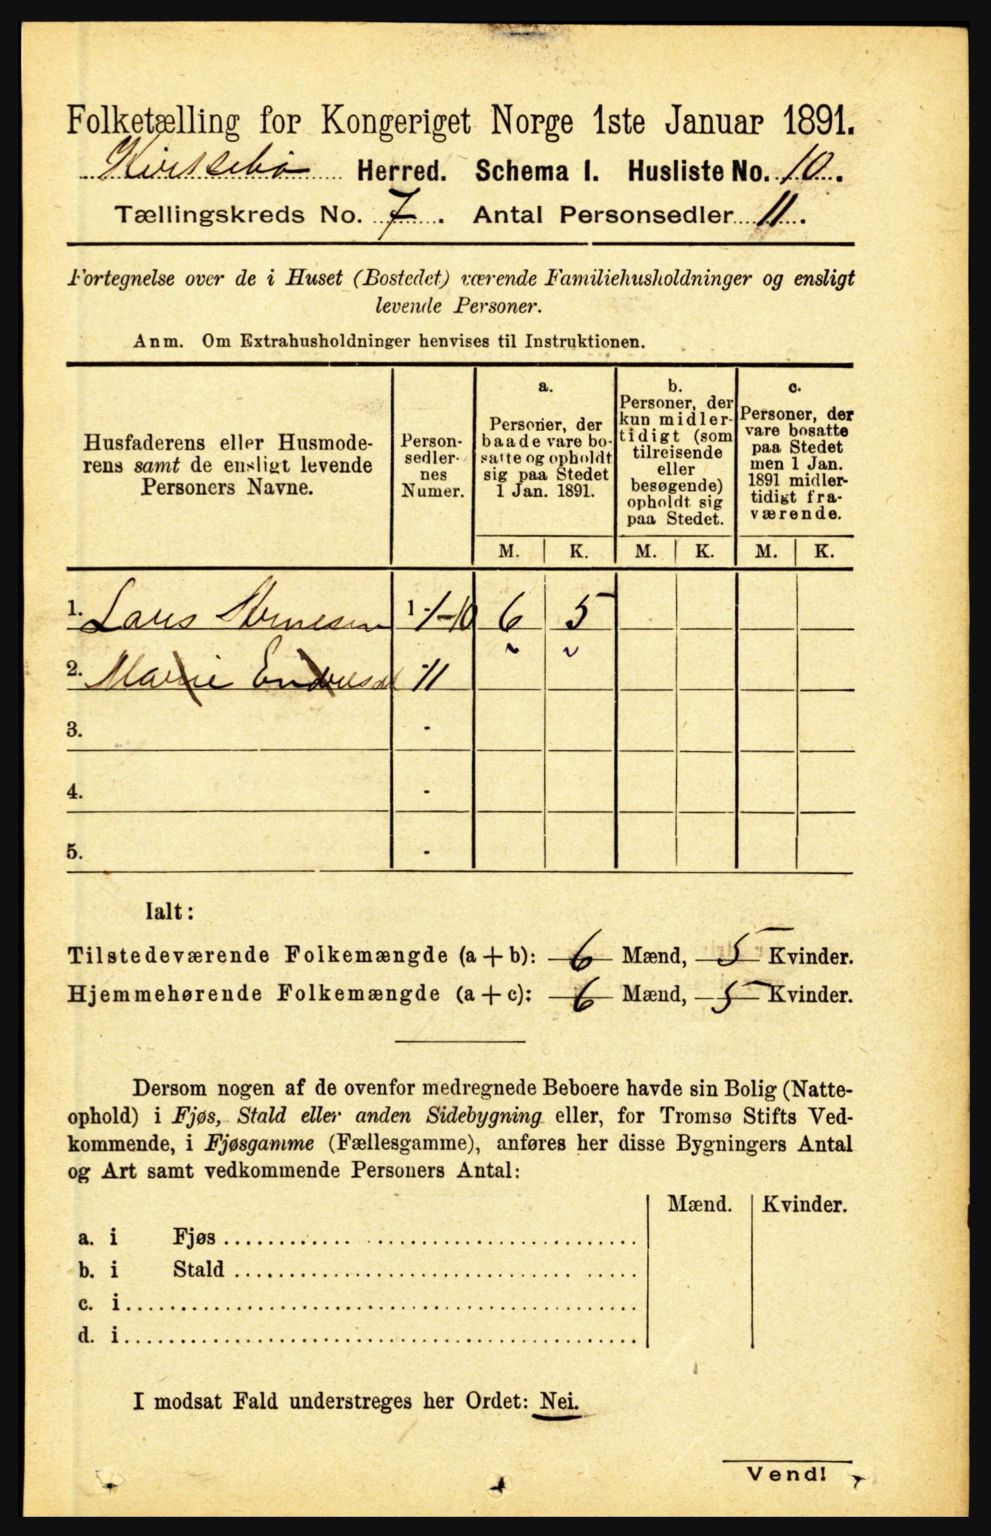 Folketælling for Kongeriget Norge 1ste Januar 1891.
Kirkebø Herred. Schema I. Husliste No. 10.
Tællingskreds No. 7. Antal Personsedler 11.
Fortegnelse over de i Huset (Bostedet) værende Familiehusholdninger og ensligt
levende Personer.
Anm. Om Extrahusholdninger henvises til Instruktionen.
Husfaderens eller Husmode-
rens samt de ensligt levende
Personers Navne.
Person-
sedler-
nes
Numer.
a.
Personer, der
baade vare bo-
satte og opholdt
sig paa Stedet
1 Jan. 1891.
b.
Personer, der
kun midler-
tidigt (som
tilreisende
eller
besøgende)
opholdt sig
paa Stedet.
c.
Personer, der
vare bosatte
paa Stedet
men 1 Jan.
1891 midler-
tidigt fra-
værende.
M. K. M. K. M. K.
1. Lars 1-10 6 5
2. Marie 11
3. -
4. -
5. -
Ialt:
Tilstedeværende Folkemængde (a + b): 6 Mænd, 5 Kvinder.
Hjemmehørende Folkemængde (a + c): 6 Mænd, 5 Kvinder.
Dersom nogen af de ovenfor medregnede Beboere havde sin Bolig (Natte-
ophold) i Fjøs, Stald eller anden Sidebygning eller, for Tromsø Stifts Ved-
kommende, i Fjøsgamme (Fællesgamme), anføres her disse Bygningers Antal
og Art samt vedkommende Personers Antal:
Mænd. Kvinder.
a. i Fjøs
b. i Stald
c. i
d. i
I modsat Fald understreges her Ordet: Nei.
Vend!